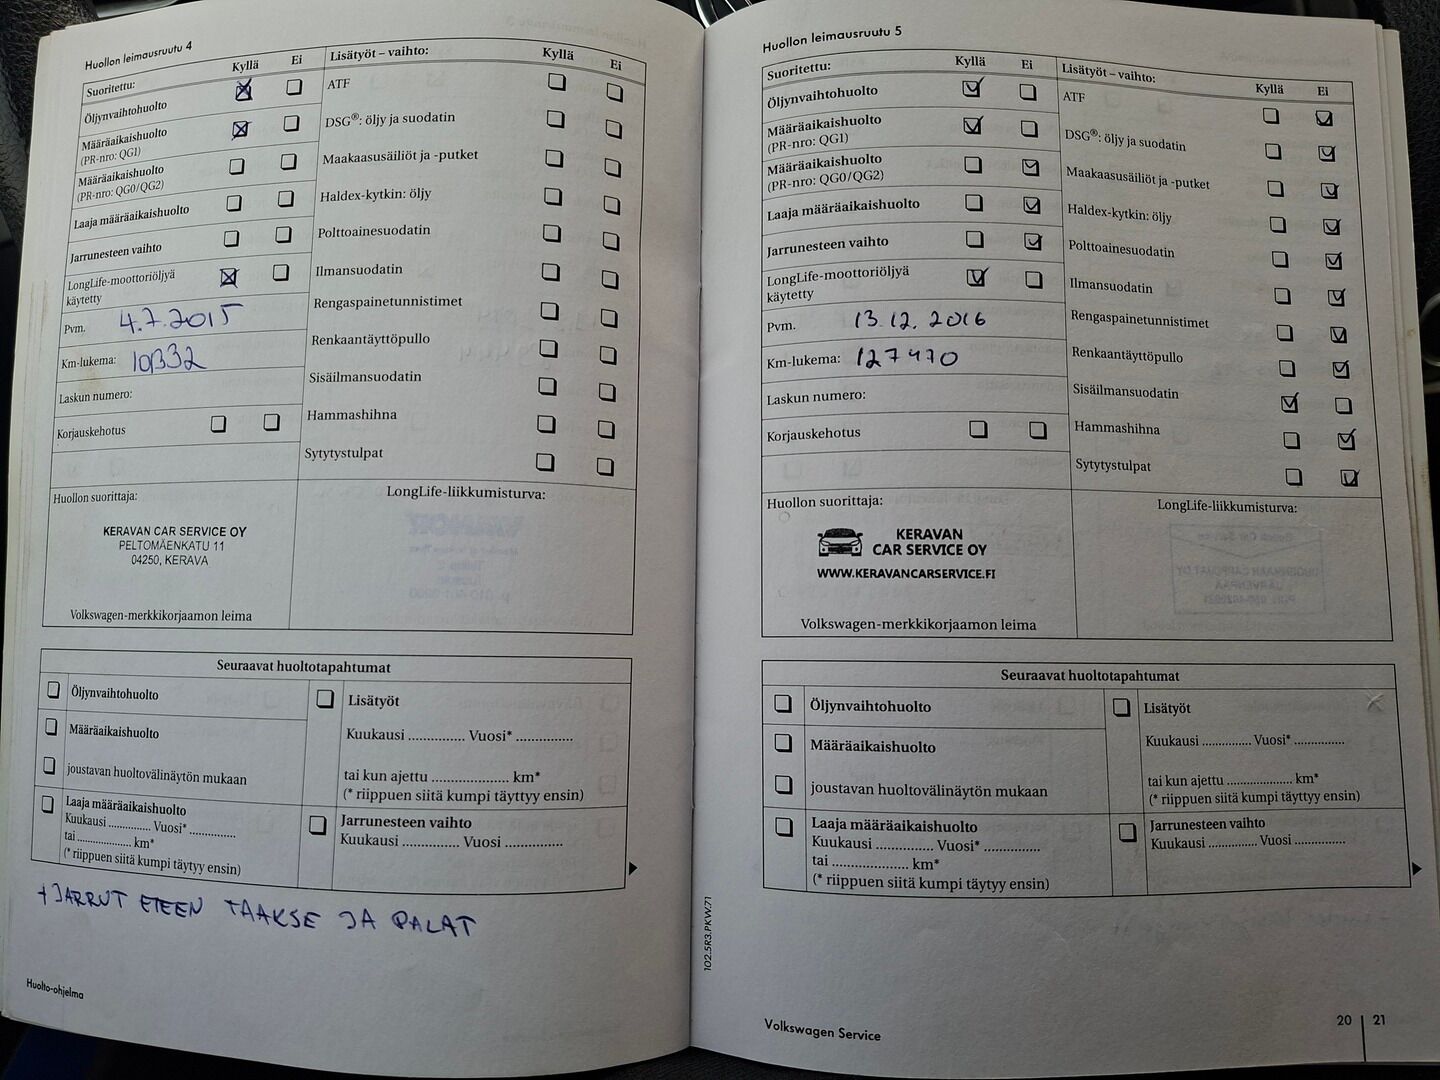 Huollon leimausruutu 4
Suoritettu: Kyllä Ei
Öljynvaihtohuolto
Määräaikaishuolto
(PR-nro: QG1)
Määräaikaishuolto
(PR-nro: QG0/QG2)
Laaja määräaikaishuolto
Jarrunesteen vaihto
LongLife-moottoriöljyä
käytetty
Pvm. 4.7.2015
Km-lukema:
Laskun numero:
Korjauskehotus
Lisätyöt – vaihto: Kyllä Ei
ATF
DSG®: öljy ja suodatin
Maakaasusäiliöt ja -putket
Haldex-kytkin: öljy
Polttoainesuodatin
Ilmansuodatin
Rengaspainetunnistimet
Renkaantäyttöpullo
Sisäilmansuodatin
Hammashihna
Sytytystulpat
Huollon suorittaja:
KERAVAN CAR SERVICE OY
PELTOMÄENKATU 11
04250, KERAVA
Volkswagen-merkkikorjaamon leima
LongLife-liikkumisturva:
Seuraavat huoltotapahtumat
Öljynvaihtohuolto
Määräaikaishuolto
joustavan huoltovälinäytön mukaan
Laaja määräaikaishuolto
Kuukausi .............. Vuosi* ..............
tai .................... km*
(* riippuen siitä kumpi täytyy ensin)
Lisätyöt
Kuukausi .............. Vuosi* ..............
tai kun ajettu .................... km*
(* riippuen siitä kumpi täyttyy ensin)
Jarrunesteen vaihto
Kuukausi .............. Vuosi ..............
+ JARRUT ETEEN TAAKSE JA PALAT
Huolto-ohjelma
Huollon leimausruutu 5
Suoritettu: Kyllä Ei
Öljynvaihtohuolto
Määräaikaishuolto
(PR-nro: QG1)
Määräaikaishuolto
(PR-nro: QG0/QG2)
Laaja määräaikaishuolto
Jarrunesteen vaihto
LongLife-moottoriöljyä
käytetty
Pvm. 13.12.2016
Km-lukema: 127470
Laskun numero:
Korjauskehotus
Lisätyöt – vaihto: Kyllä Ei
ATF
DSG®: öljy ja suodatin
Maakaasusäiliöt ja -putket
Haldex-kytkin: öljy
Polttoainesuodatin
Ilmansuodatin
Rengaspainetunnistimet
Renkaantäyttöpullo
Sisäilmansuodatin
Hammashihna
Sytytystulpat
Huollon suorittaja:
KERAVAN
CAR SERVICE OY
WWW.KERAVANCARSERVICE.FI
Volkswagen-merkkikorjaamon leima
LongLife-liikkumisturva:
Seuraavat huoltotapahtumat
Öljynvaihtohuolto
Määräaikaishuolto
joustavan huoltovälinäytön mukaan
Laaja määräaikaishuolto
Kuukausi .............. Vuosi* ..............
tai .................... km*
(* riippuen siitä kumpi täytyy ensin)
Lisätyöt
Kuukausi .............. Vuosi* ..............
tai kun ajettu .................... km*
(* riippuen siitä kumpi täyttyy ensin)
Jarrunesteen vaihto
Kuukausi .............. Vuosi ..............
102.5R3.PKW.71
Volkswagen Service
20 | 21